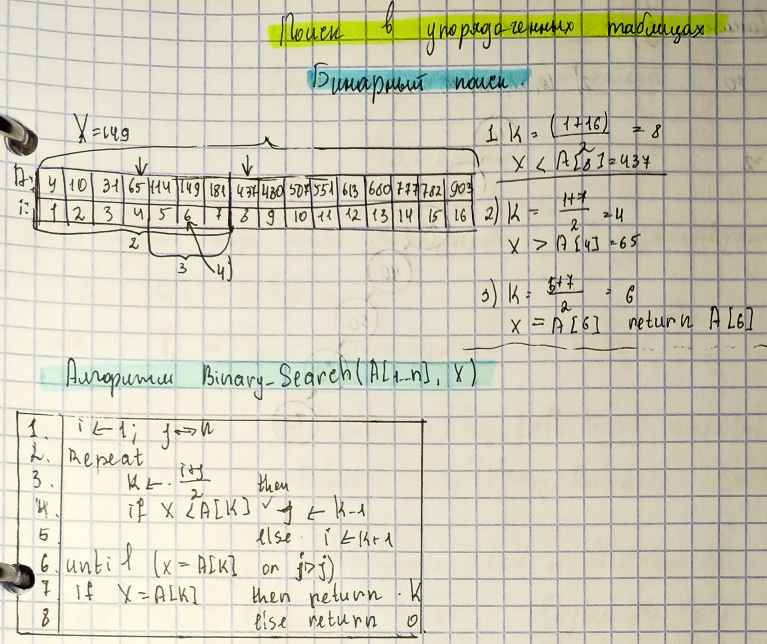 Поиск в упорядоченных таблицах
Бинарный поиск.
X=149
A: 4 10 31 65 114 149 181 437 480 507 551 613 680 777 782 903
i: 1 2 3 4 5 6 7 8 9 10 11 12 13 14 15 16
2 3 4)
1 K = (1+16)/2 = 8
X < A[8] = 437
2) K = 1+7/2 = 4
X > A[4] = 65
3) K = 5+7/2 = 6
X = A[6] return A[6]
Алгоритм Binary-Search(A[1..n], X)
1. i ← 1; j ↔ n
2. Repeat
3. K ← i+j/2 then
4. if X < A[K] j ← K-1
5 else i ← K+1
6. until (x = A[K] or j>j)
7 if X = A[K] then return K
8 else return 0